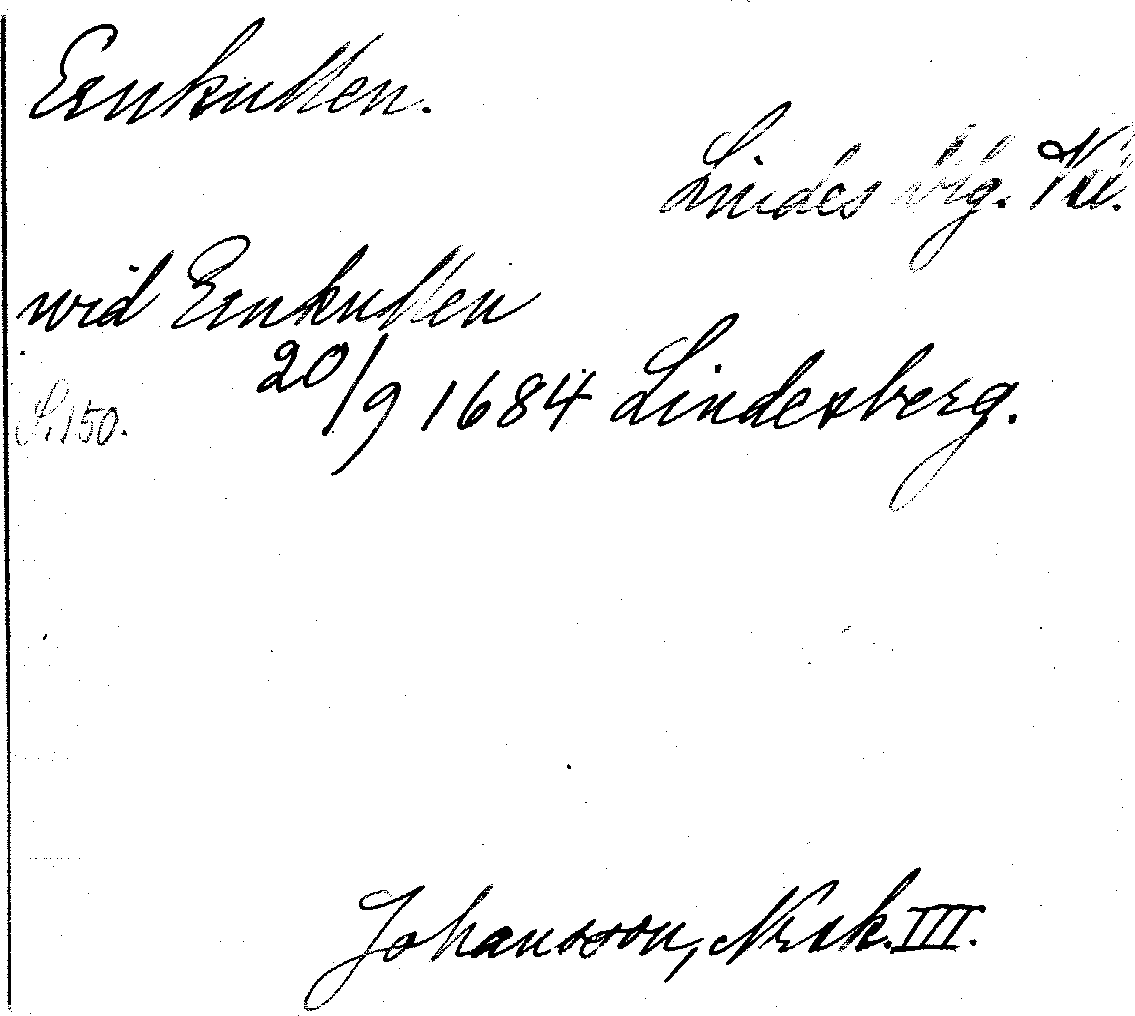 Ernkullen.
Lindes
wid Ernkullen
20/9 1684 Lindesberg.
S. 150.
Johansson, Nrsk. III.